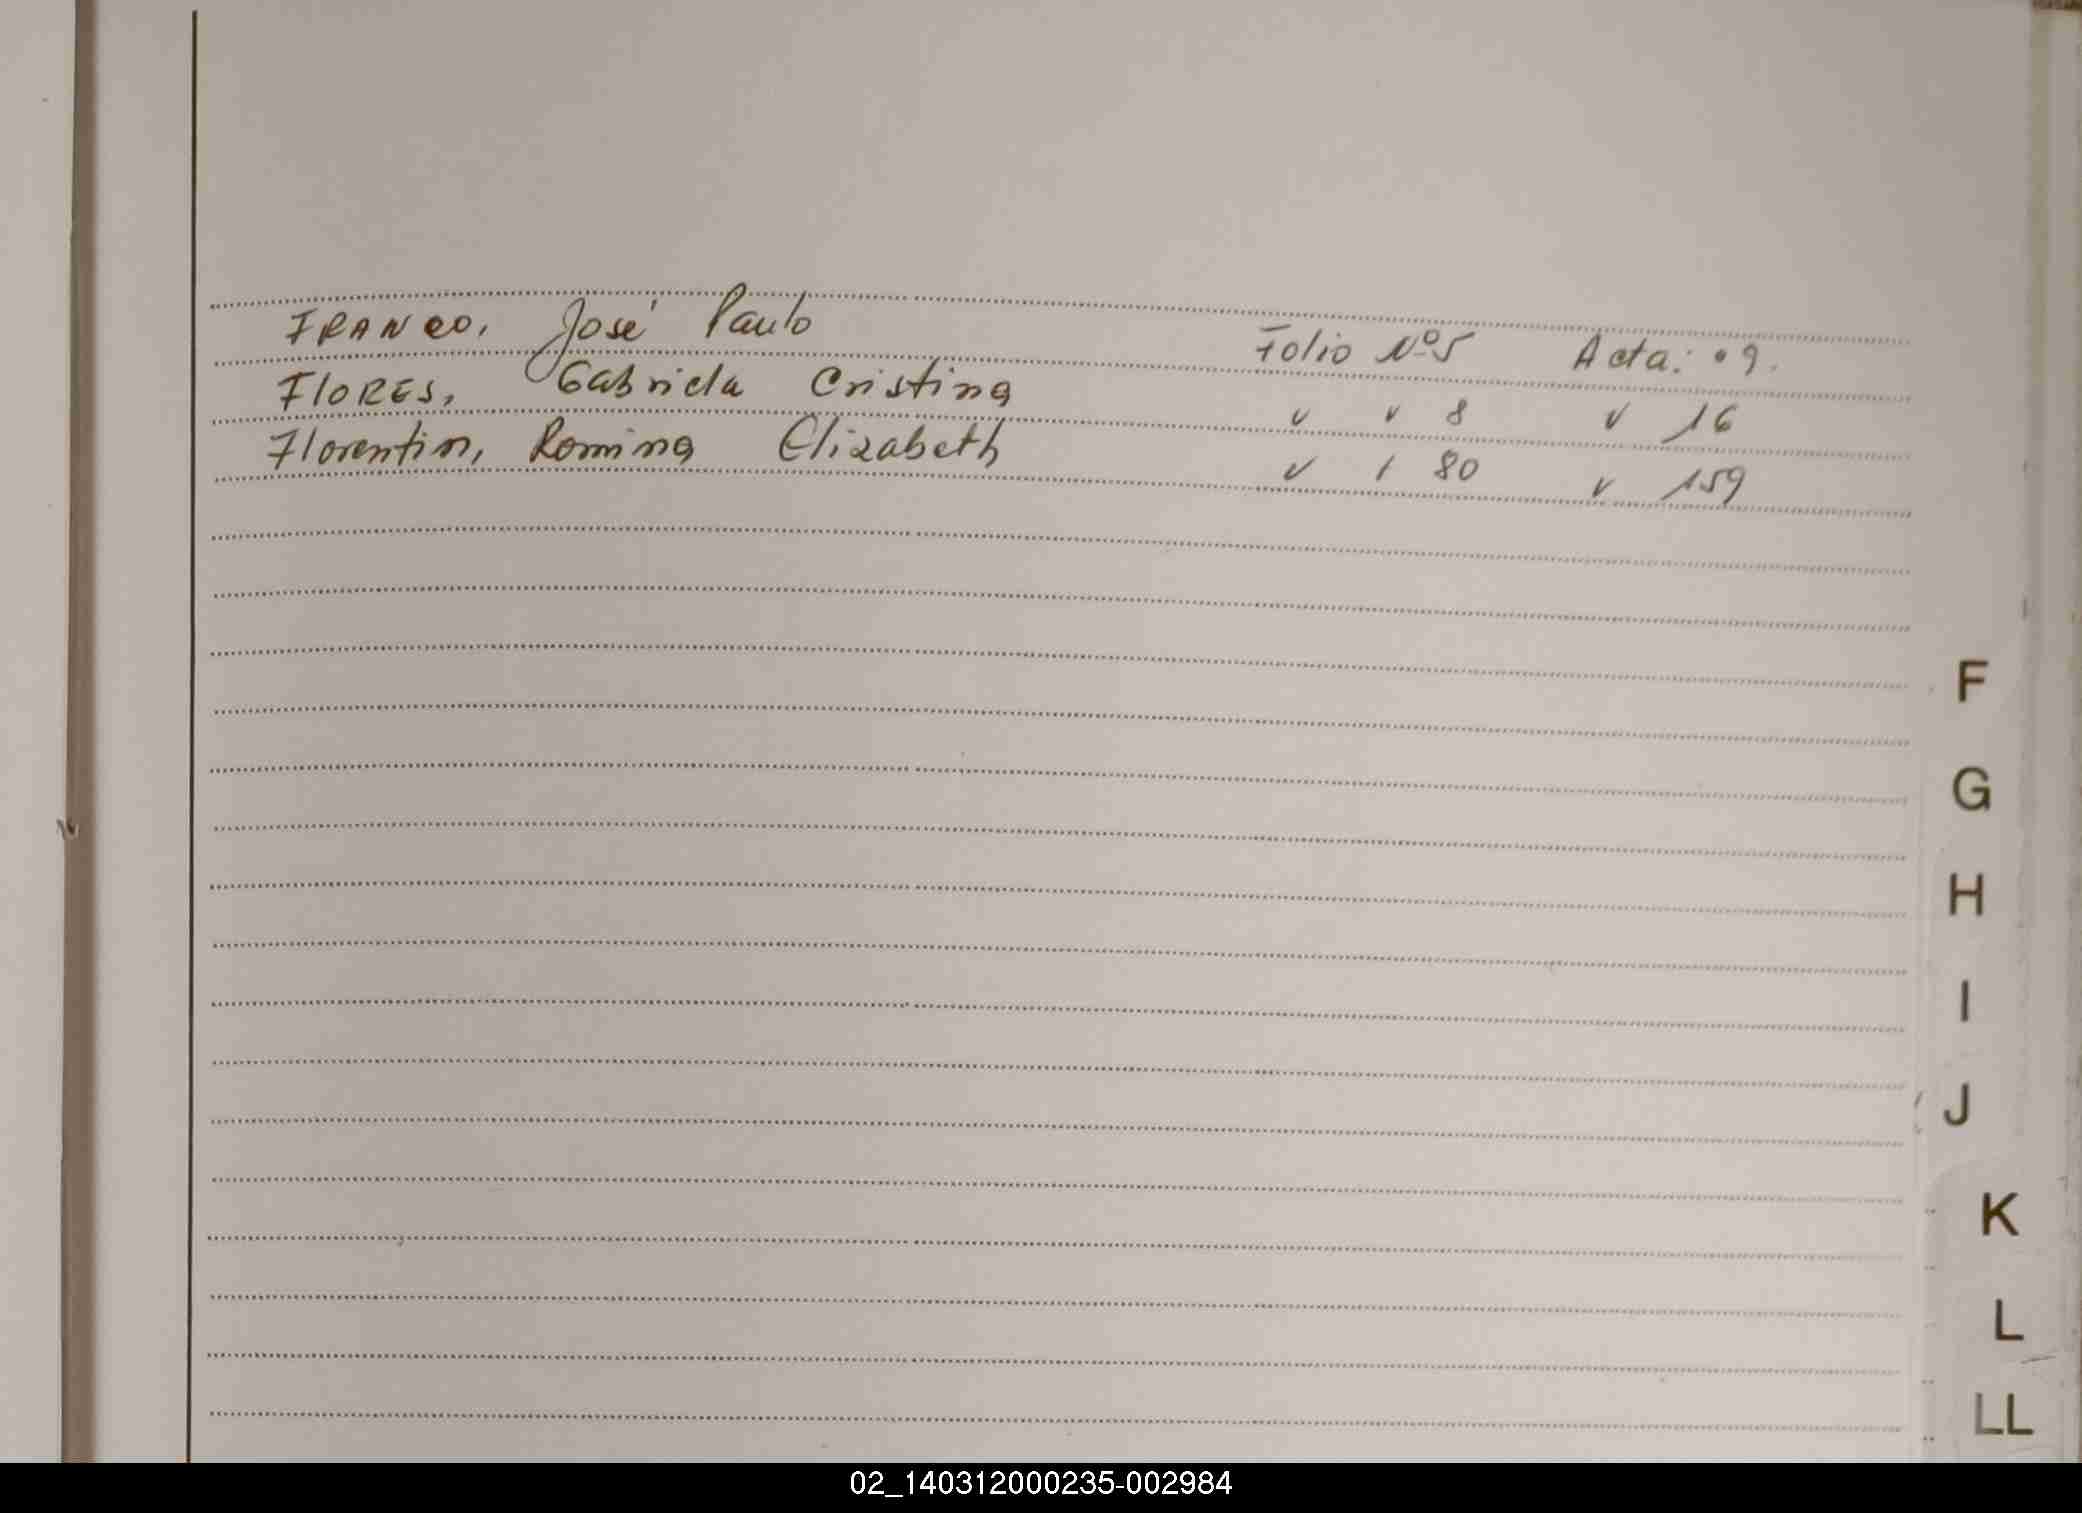 FRANCO, José Paulo Folio Nº 5 Acta: 09.
FLORES, Gabriela Cristina v v 8 v 16
Florentin, Romina Elizabeth v / 80 v 159
F
G
H
I
J
K
L
LL
02_140312000235-002984